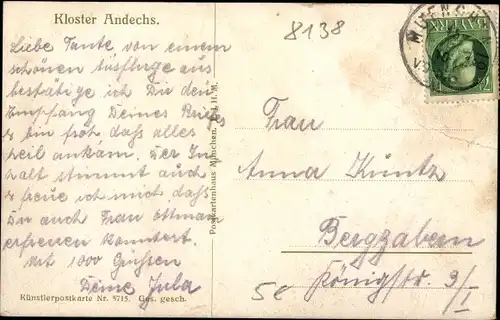 Kloster Andechs.
8138
MUENCH
BAYERN
Liebe Tante, von einem
schönen Ausfluge aus
bestätige ich Dir den
Empfang Deines Briefes
& bin froh daß alles
heil ankam. Der In-
halt stimmt auch
& freue ich mich daß
Du auch Frau Ottmann
erfreuen konntest.
Mit 1000 Grüßen
Deine Jula
Postkartenhaus München. P. J. H. M.
Frau
Anna Kuntz
Bergzabern
Königstr. 9/I
5€
Künstlerpostkarte Nr. 5715. Ges. gesch.